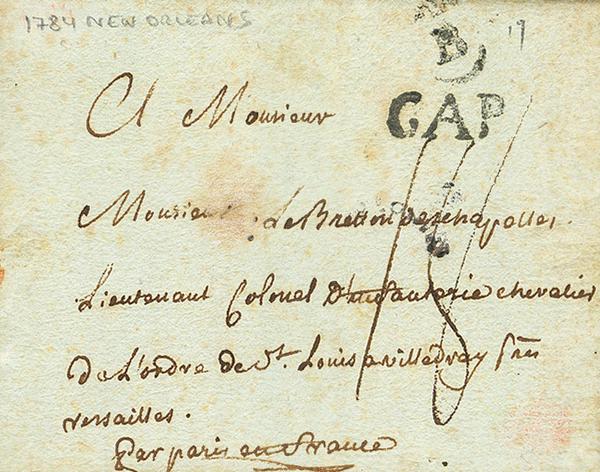 1784 NEW ORLEANS
B
A Monsieur
CAP
18
Monsieur Le Bretton Deschapelles
Lieutenant Colonel D'infanterie chevalier
De L'ordre de St. Louis a villedvray près
versailles.
Par paris en France